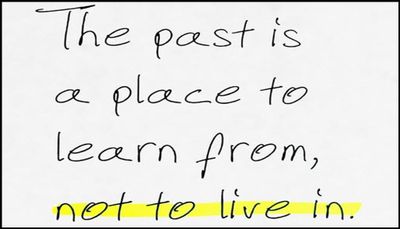 The past is
a place to
learn from,
not to live in.